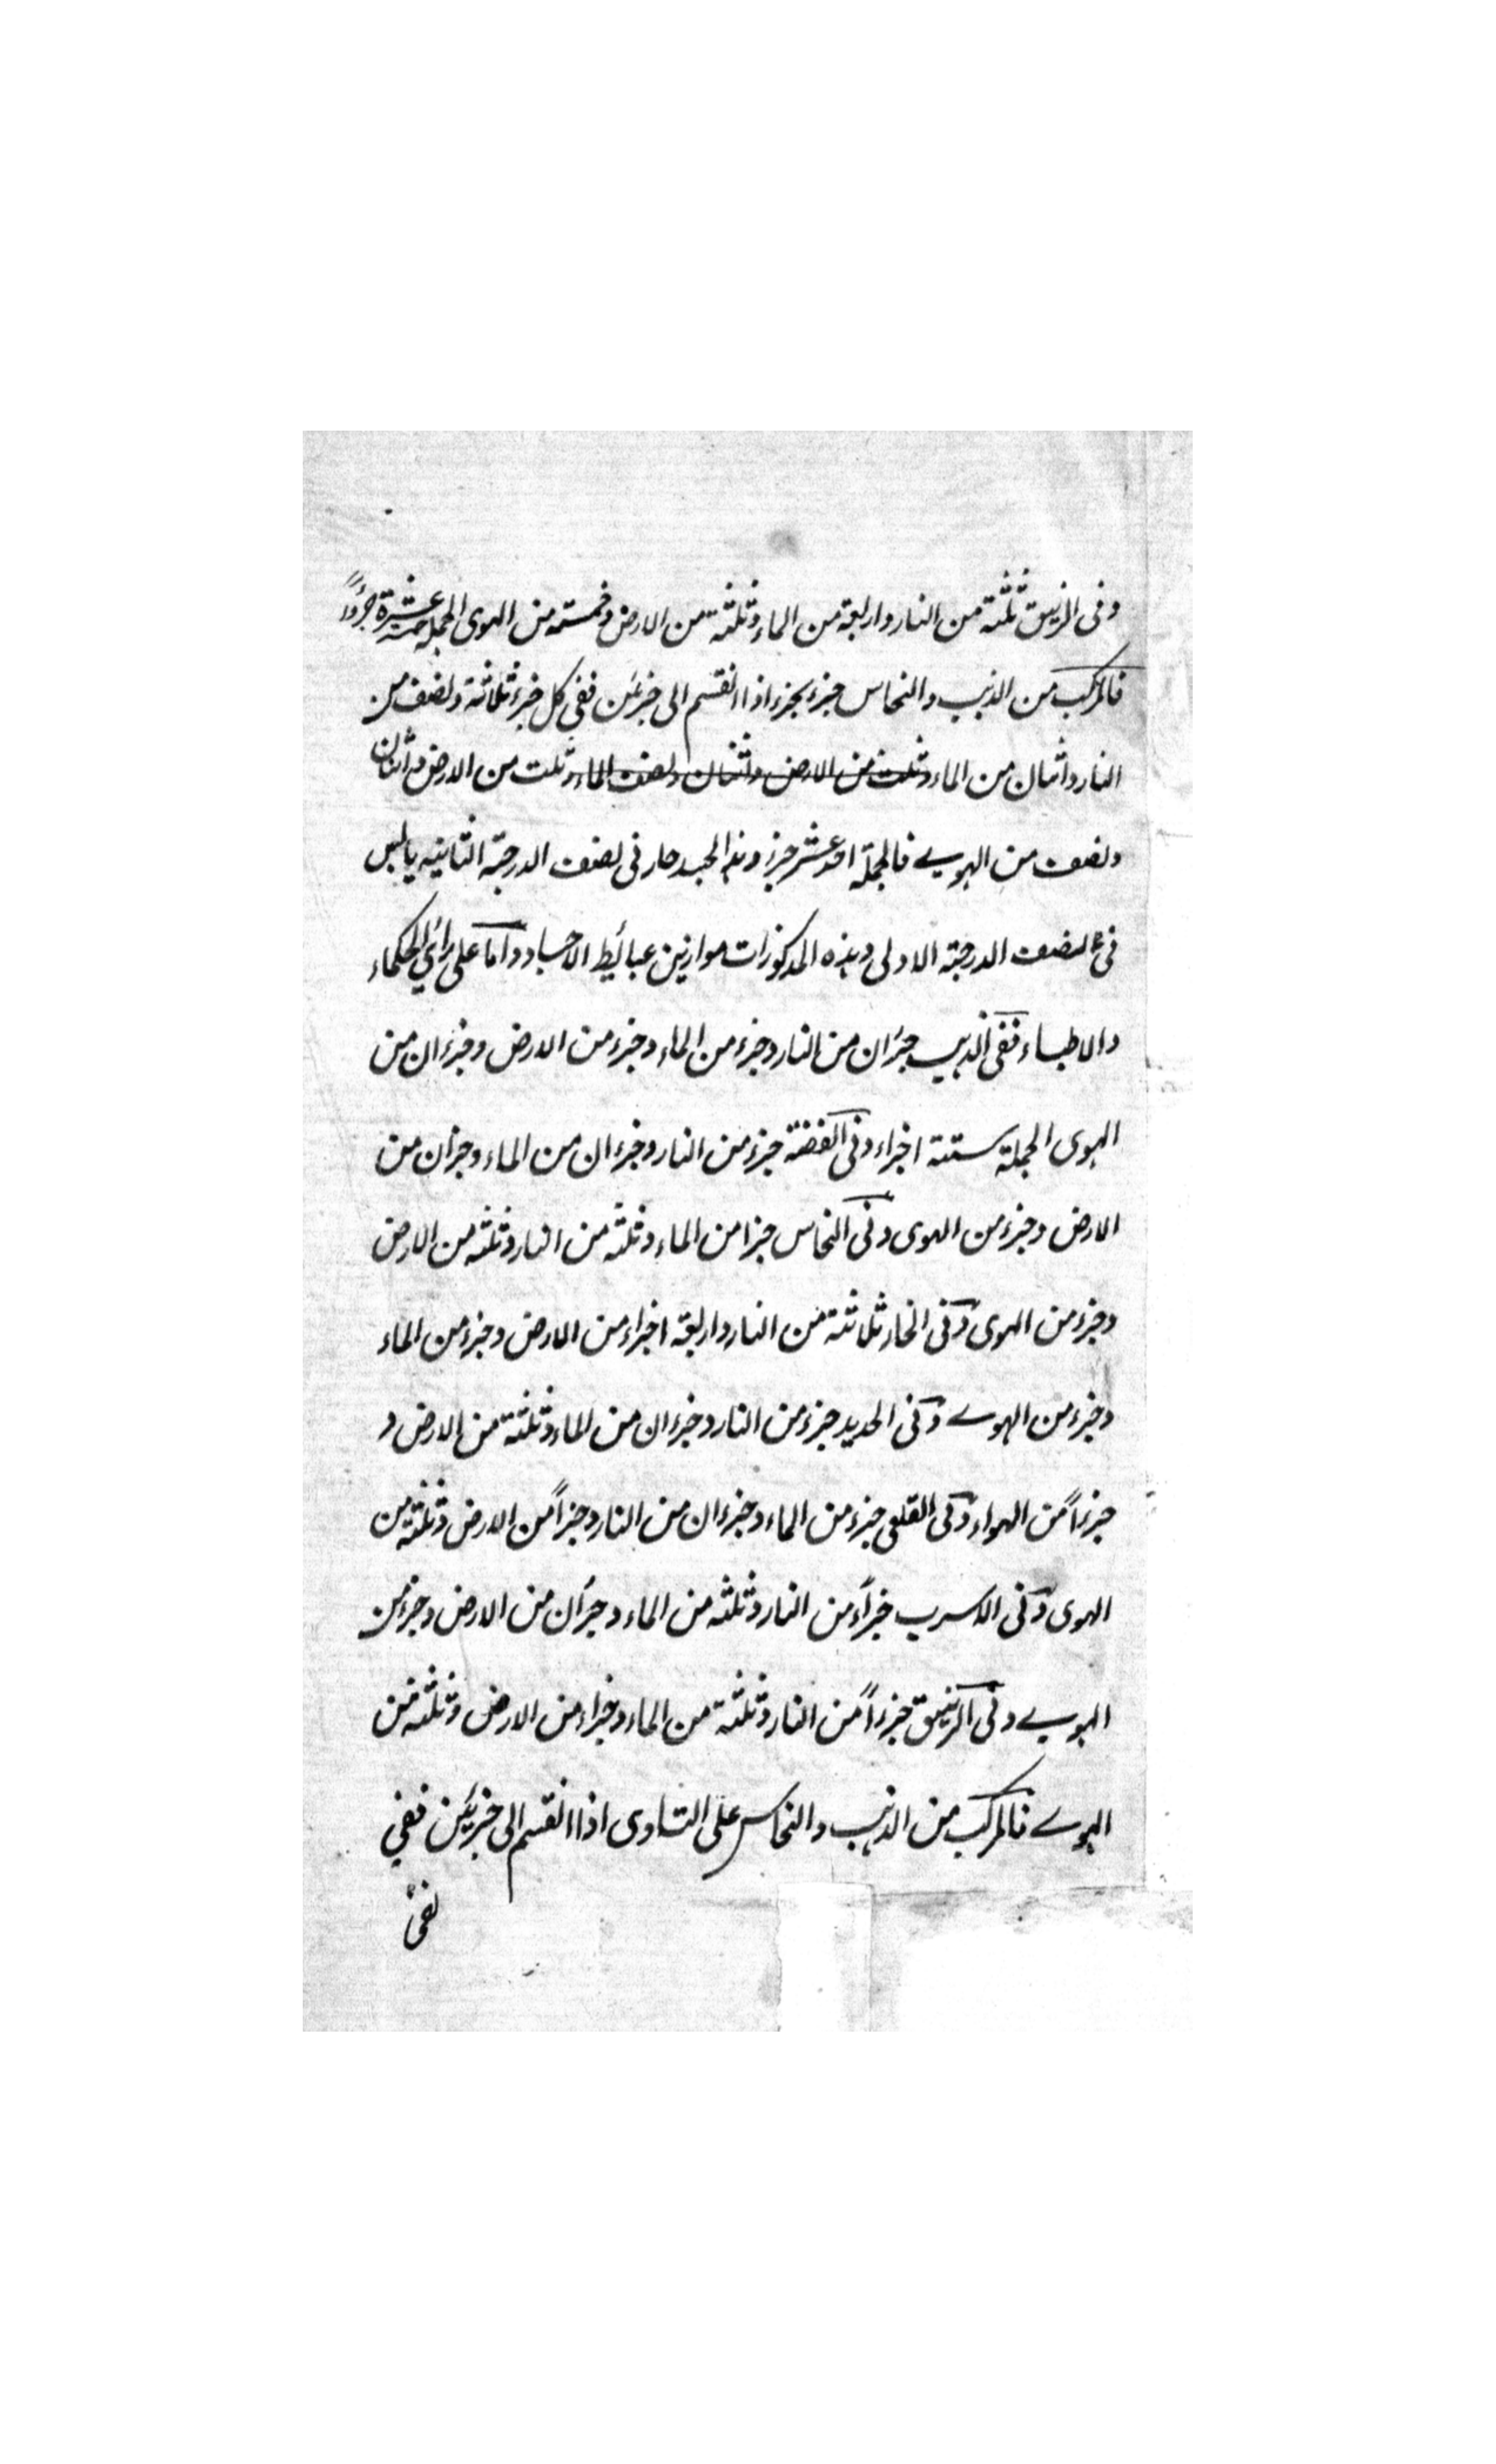 وفى الزيبق ثلثة من النار واربعة من الماء وثلثة من الارض وخمسة من الهوى الجملة خمسة عشرة جزواً
فالمركب من الذهب والنحاس جزء بجزء اذا انقسم الى جزئين ففى كل جزء ثلاثة ونصف من
النار واثنان من الماء وثلث من الارض واثنان ونصف الماء وثلث من الارض واثنان
ونصف من الهوے فالجملة احد عشر جزء وهذا الجسد حار فى نصف الدرجة الثانيه يابس
فى نصف الدرجة الاولى وهذه المذكورات موازين عبائط الاجساد واما على راى الحكماء
والاطباء ففى الذهب جزان من النار وجزء من الماء وجزء من الارض وجزءان من
الهوى الجملة ستة اجزاء وفى الفضة جزء من النار وجزءان من الماء وجزان من
الارض وجزء من الهوى وفى النحاس جزا من الماء وثلثه من النار وثلثه من الارض
وجزء من الهوى وفى الخار ثلاثة من النار واربعة اجزاء من الارض وجزء من الماء
وجزء من الهوے وفى الحديد جزء من النار وجزءان من الماء وثلثة من الارض و
جزءاً من الهواء وفى القلعى جزء من الماء وجزءان من النار وجزاً من الارض وثلثة من
الهوى وفى الاسرب جزاء من النار وثلثه من الماء وجزان من الارض وجزء من
الهوے وفى الزيبق جزءاً من النار وثلثة من الماء وجزاء من الارض وثلثه من
الهوے فالمركب من الذهب والنحاس على التساوى اذا انقسم الى جزئين ففي
ففى